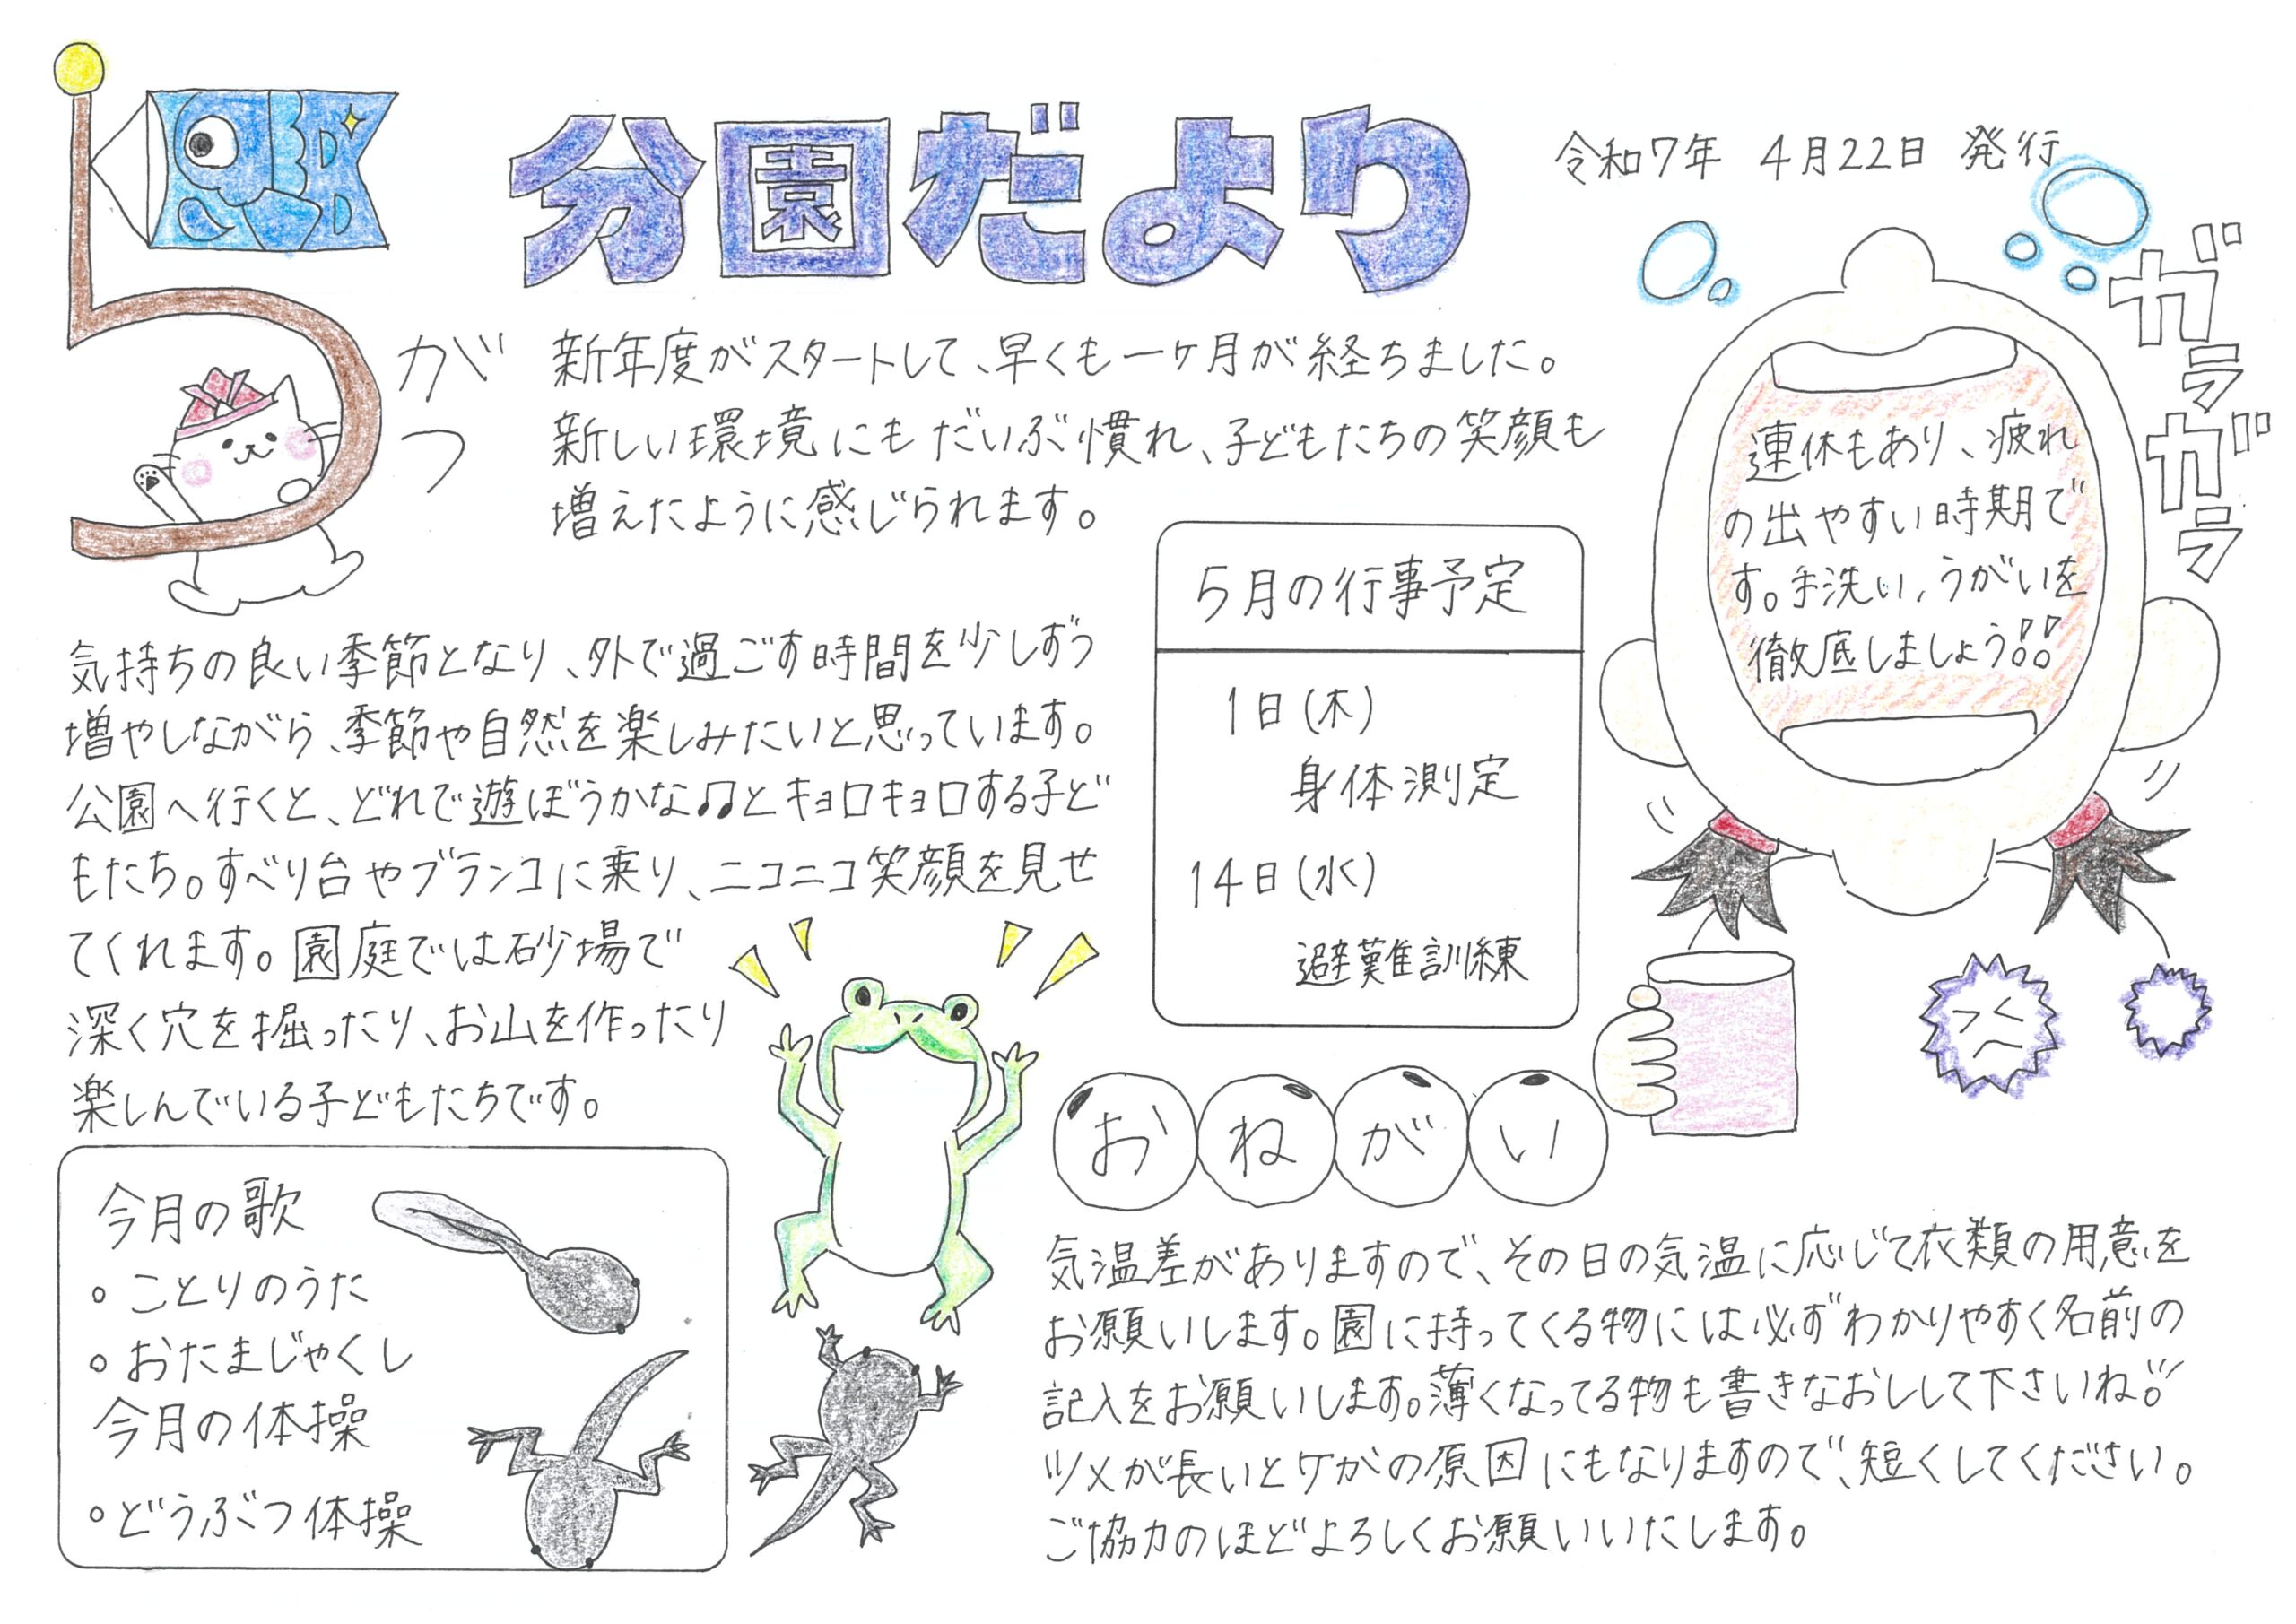 分園だより
令和7年 4月22日 発行
5がつ
新年度がスタートして、早くも一ヶ月が経ちました。
新しい環境にもだいぶ慣れ、子どもたちの笑顔も
増えたように感じられます。
気持ちの良い季節となり、外で過ごす時間を少しずつ
増やしながら、季節や自然を楽しみたいと思っています。
公園へ行くと、どれで遊ぼうかな♫とキョロキョロする子ど
もたち。すべり台やブランコに乗り、ニコニコ笑顔を見せ
てくれます。園庭では砂場で
深く穴を掘ったり、お山を作ったり
楽しんでいる子どもたちです。
5月の行事予定
1日(木)
身体測定
14日(水)
避難訓練
ガラガラ
連休もあり、疲れ
の出やすい時期で
す。手洗い,うがいを
徹底しましょう!!
今月の歌
○ ことりのうた
○ おたまじゃくし
今月の体操
○ どうぶつ体操
おねがい
気温差がありますので、その日の気温に応じて衣類の用意を
お願いします。園に持ってくる物には必ずわかりやすく名前の
記入をお願いします。薄くなってる物も書きなおしして下さいね!!
ツメが長いとケガの原因にもなりますので、短くしてください。
ご協力のほどよろしくお願いいたします。